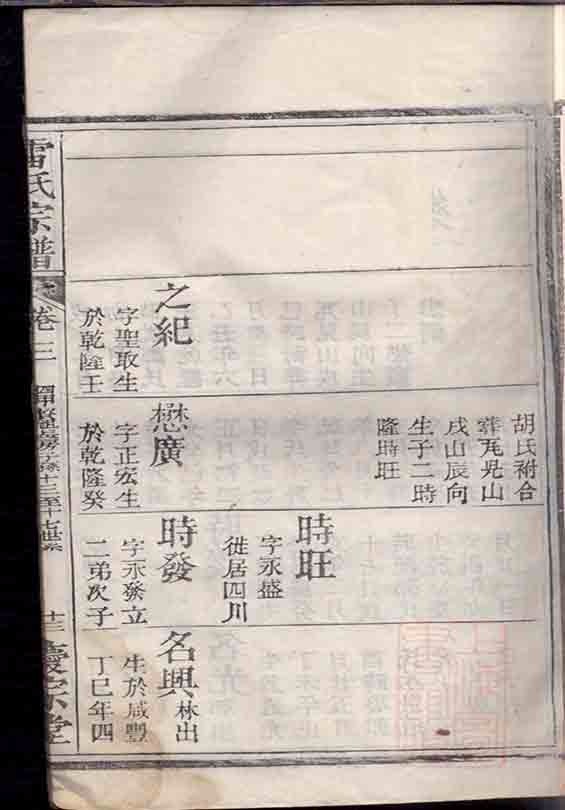 胡氏祔合
葬瓦晃山
戌山辰向
生子二時
隆時旺
時旺
字永盛
徙居四川
之紀
字聖取生
於乾隆壬
懋廣
字正宏生
於乾隆癸
時發
字永發立
二弟次子
名興林出
生於咸豐
丁巳年四
雷氏宗譜
卷三
十三